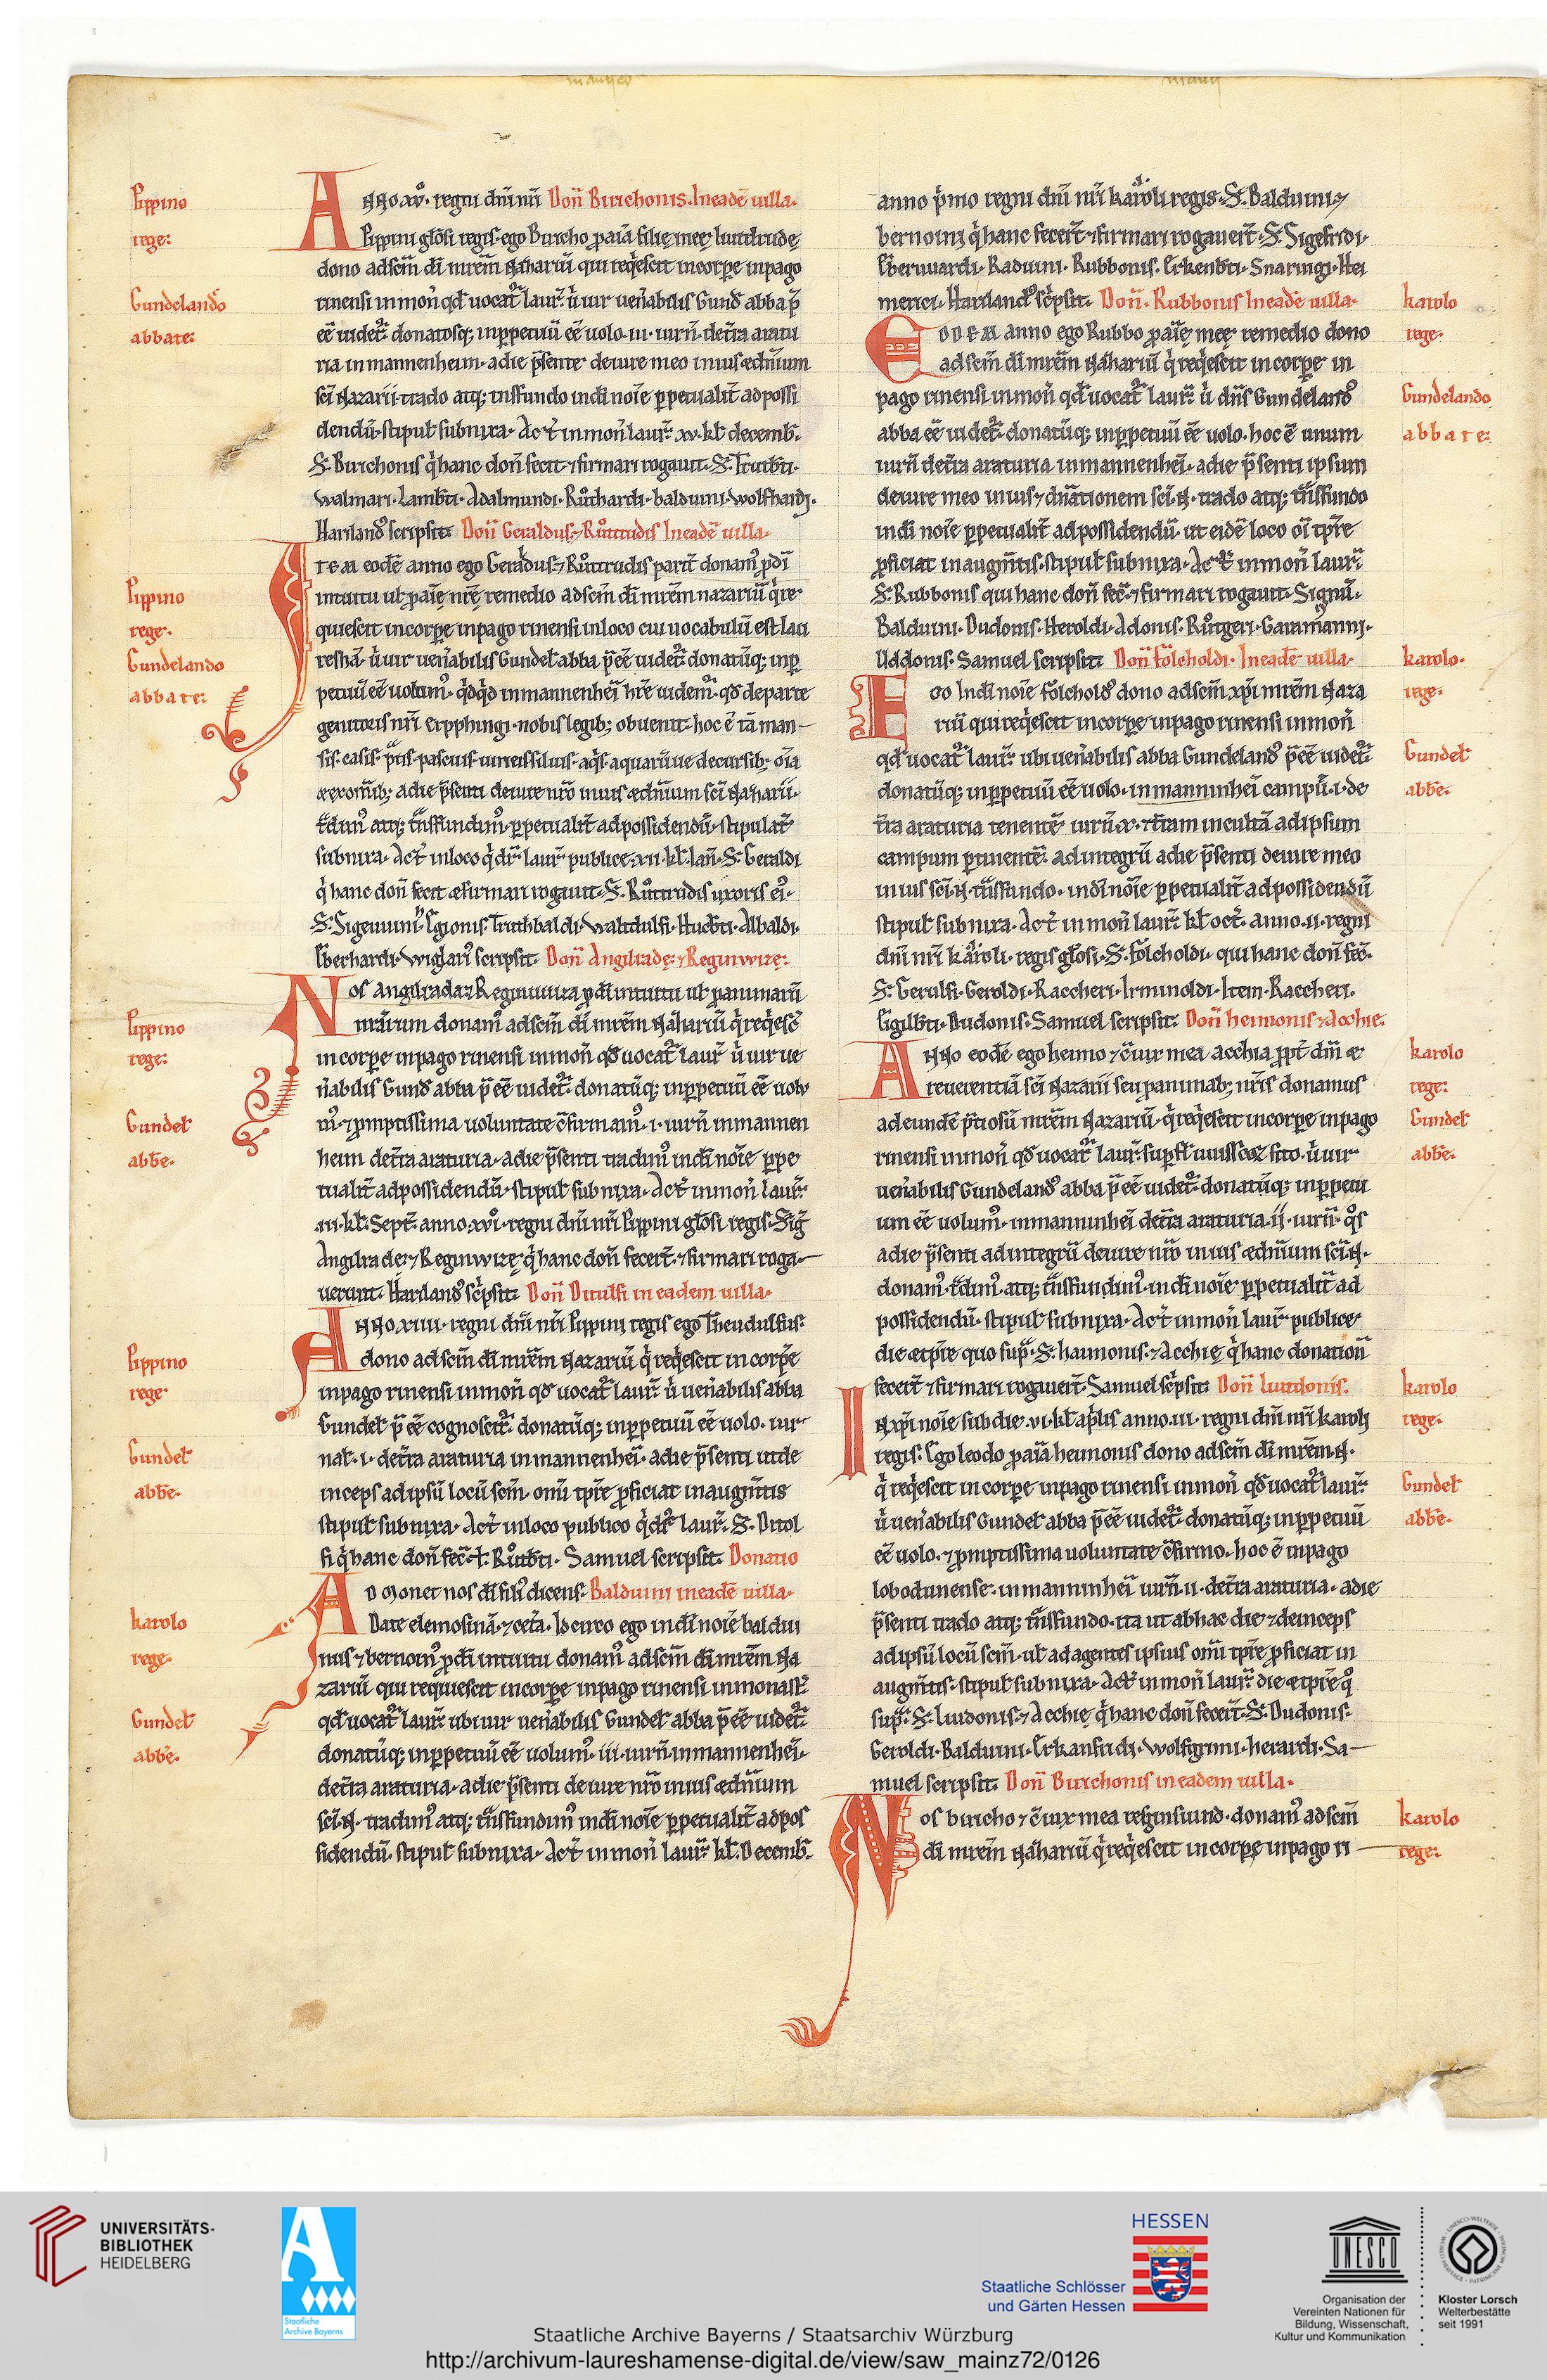 Pippino
rege:
Gundelando
abbate:
Anno xv. regni dni nri Don Burichonis. In eade uilla.
Pippini glosi regis. ego Buricho p aia filie mee liuttrude
dono ad scm di mrem Nazhariu qui reqescit in corpe in pago
rinensi in mon qd uocat laur. u uir uenabilis Gund abba p
ee uidet. donatuq; inppetuu ee uolo. iu. iurn. detra aratu
ria in mannenheim. a die psente de iure meo in ius & dnium
sci Nazarii. trado atq; tnsfundo in di noie ppetualit ad possi
dendu. stipul subnixa. Act in mon laur. xv. kl decemb.
S. Burichonis q hanc don fecit & firmari rogauit. S. Trutbti.
walmari. Lambti. Adalmundi. Ruthardi. balduini. wolfhardi.
Harilando scripsit. Don Geraldus & Ruttrudis In eade uilla.
Pippino
rege.
Gundelando
abbate:
Item eode anno ego Geraldus & Ruttrudis parit donam p di
intuitu ul p aie nre remedio ad scm di mrem nazariu q re
quiescit in corpe in pago rinensi in loco cui uocabulu est lau
resha. u uir uenabilis Gundel abba p ee uidet. donatuq; inp
petuu ee uolum. qdqd in mannenhei hre uidem. qd de parte
genitoris nri Erpphingi. nobis legib; obuenit. hoc e ta man
sis. casis. ptis. pascuis. uineis siluis. aqs. aquaru ue decursib; oia
& ex omib; a die psenti de iure nro in ius & dnium sci Nazharii.
tdim atq; tnsfundim. ppetualit ad possidendu. stipulat
subnixa. Act in loco q dr laur publice. xii. kl. Ian. S. Geraldi
q hanc don fecit & firmari rogauit. S. Ruttrudis uxoris ei.
S. Sigeuuini. Egionis. Truthbaldi. Waltdulfi. Hucbti. Albaldi.
Eberhardi. Wiglari scripsit. Don Angilrade & Reginwize:
Pippino
rege:
Gundel
abbe.
Nos Angilrada & Reginuuiza p di intuitu ul p animaru
nrarum donam ad scm di mrem Nazhariu q reqesc
in corpe in pago rinensi in mon qd uocat laur u uir ue
nabilis Gund abba p ee uidet. donatuq; inppetuu ee uolu
m. & pmptissima uoluntate cfirmam. i. iurn in mannen
heim detra araturia. a die psenti tradim in di noie ppe
tualit ad possidendu. stipul subnixa. Act in mon laur.
iii. kl. Sept. anno xvi. regni dni nri Pippini glosi regis. Sig
Angilrade & Reginwize q hanc don fecert. & firmari roga
uerunt. Harilando scpsit. Don Ditulfi in eadem uilla.
Pippino
rege.
Gundel
abbe.
Anno xiiii. regni dni nri Pippini regis ego Theudulfus.
dono ad scm di mrem Nazariu q reqescit in corpe
in pago rinensi in mon qd uocat laur u uenabilis abba
Gundel p ee cognoscit. donatuq; inppetuu ee uolo. iur
nal. i. detra araturia in mannenhei. a die psenti ut de
inceps ad ipsu locu scm. omi tpre pficiat in augmtis
stipul subnixa. Act in loco publico q dr laur. S. Ditol
fi q hanc don fec. Rutbti. Samuel scripsit. Donatio
karolo
rege.
Gundel
abbe.
Ad monet nos di fili dicens. Balduini in eade uilla.
Date elemosina. & ceta. Idcirco ego in di noie baldui
nus & bernoin p di intuitu donam ad scm di mrem Na
zariu qui requiescit in corpe in pago rinensi in monast
qd uocat laur ubi uir uenabilis Gundel abba p ee uidet.
donatuq; inppetuu ee uolum. iii. iurn in mannenhei.
detra araturia. a die psenti de iure nro in ius & dnium
sci N. tradim atq; tnsfundim in di noie ppetualit ad pos
sidendu. stipul subnixa. Act in mon laur kl. Decemb.
anno pmo regni dni nri karoli regis. S. Balduini &
bernoini q hanc fecert & firmari rogauert. S. Sigefridi.
Eberuuardi. Raduini. Rubbonis. Erkenbti. Snaringi. Hei
merici. Harilando scpsit. Don. Rubbonis In eade uilla.
karolo
rege.
Gundelando
abbate:
Eodem anno ego Rubbo p aie mee remedio dono
ad scm di mrem Nazhariu q reqescit in corpe in
pago rinensi in mon qd uocat laur u dns Gundelando
abba ee uidet. donatuq; inppetuu ee uolo. hoc e unum
iurn detra araturia in mannenhei. a die psenti ipsum
de iure meo in ius & dnationem sci N. trado atq; tnsfundo
in di noie ppetualit ad possidendu. ut eide loco oi tpre
pficiat in augmtis. stipul subnixa. Act in mon laur.
S. Rubbonis qui hanc don fec. & firmari rogauit. Signu.
Balduini. Dudonis. Heroldi. Adonis. Rutgeri. Garamanni.
Uddonis. Samuel scripsit. Don folcholdi. In eade uilla.
karolo.
rege.
Gundel
abbe.
Ego In di noie folchold dono ad scm xpi mrem Naza
riu qui reqescit in corpe in pago rinensi in mon
qd uocat laur. ubi uenabilis abba Gundelando p ee uidet
donatuq; inppetuu ee uolo. in manninhei campu. i. de
tra araturia tenente iurn. x. & tiam inculta ad ipsum
campum ptinente. ad integru a die psenti de iure meo
in ius sci N. tnsfundo. in di noie ppetualit ad possidendu
stipul subnixa. Act in mon laur. kl oct. anno. ii. regni
dni nri karoli. regis glosi. S. folcholdi. qui hanc don fec.
S. Gerulfi. Geroldi. Raccheri. Irminoldi. Item. Raccheri.
Egilbti. Dudonis. Samuel scripsit. Don heimonis & Acchie.
karolo
rege:
Gundel
abbe.
Anno eode ego heimo & ciux mea acchia ppt dm &
reuerentia sci Nazarii seu p animab; nris donamus
ad eunde ptiosu mrem Nazariu. q reqescit in corpe in pago
rinensi in mon qd uocat laur. sup fl uuisscoz sito. u uir
uenabilis Gundelando abba p ee uidet. donatuq; inppetu
um ee uolum. in manninhei detra araturia. ii. iurn. qs
a die psenti ad integru de iure nro in ius & dnium sci N.
donam. tdim. atq; tnsfundim. in di noie ppetualit ad
possidendu. stipul subnixa. Act in mon laur. publice
die & tpre quo sup. S. haimonis. & Acchie q hanc donation
fecert & firmari rogauert. Samuel scpsit. Don liutdonis.
karolo
rege.
Gundel
abbe.
In xpi noie sub die. vi. kl aplis anno. iii. regni dni nri karoli
regis. Ego leodo p aia heimonis dono ad scm di mrem. N.
q reqescit in corpe in pago rinensi in mon qd uocat laur.
u uenabilis Gundel abba p ee uidet. donatuq; inppetuu
ee uolo. & pmptissima uoluntate cfirmo. hoc e in pago
lobodunense. in manninhei iurn. ii. detra araturia. a die
psenti trado atq; tnsfundo. ita ut ab hac die & deinceps
ad ipsu locu scm. ul ad agentes ipsius omi tpre pficiat in
augmtis. stipul subnixa. Act in mon laur. die & tpre q
sup. S. Liudonis. & Acchie q hanc don fecert. S. Dudonis.
Geroldi. Balduini. Erkanfridi. wolfgrimi. herardi. Sa
muel scripsit. Don Burichonis in eadem uilla.
karolo
rege:
Nos buricho & ciux mea reginsuind. donam ad scm
di mrem Nazhariu q reqescit in corpe in pago ri
UNIVERSITÄTS-
BIBLIOTHEK
HEIDELBERG
Staatliche
Archive Bayerns
HESSEN
Staatliche Schlösser
und Gärten Hessen
UNESCO
Organisation der
Vereinten Nationen für
Bildung, Wissenschaft,
Kultur und Kommunikation
Kloster Lorsch
Welterbestätte
seit 1991
Staatliche Archive Bayerns / Staatsarchiv Würzburg
http://archivum-laureshamense-digital.de/view/saw_mainz72/0126